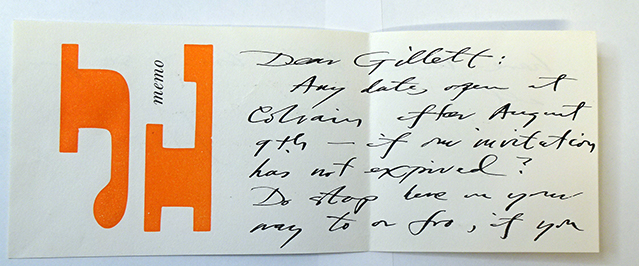 memo
Dear Gillett:
Any dates open at
Colrain after August
9th — if our invitation
has not expired?
Do stop here on your
way to or fro, if you